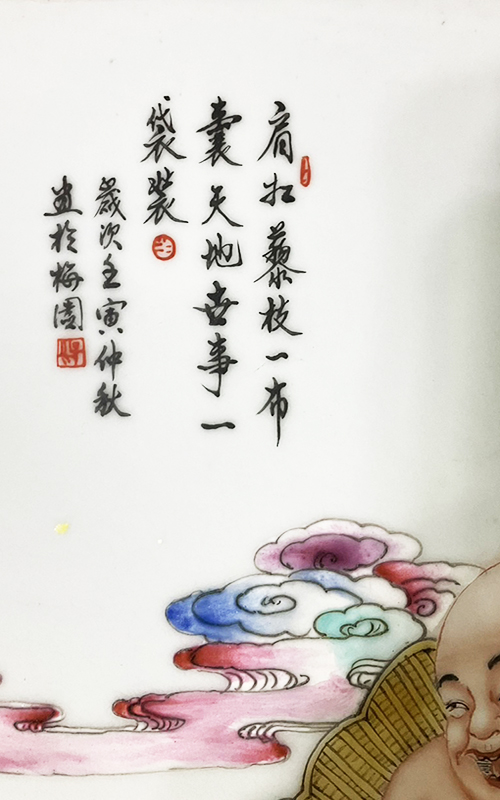 肩扛藜枝一布
囊天地世事一
袋裝
歲次壬寅仲秋
画於梅園